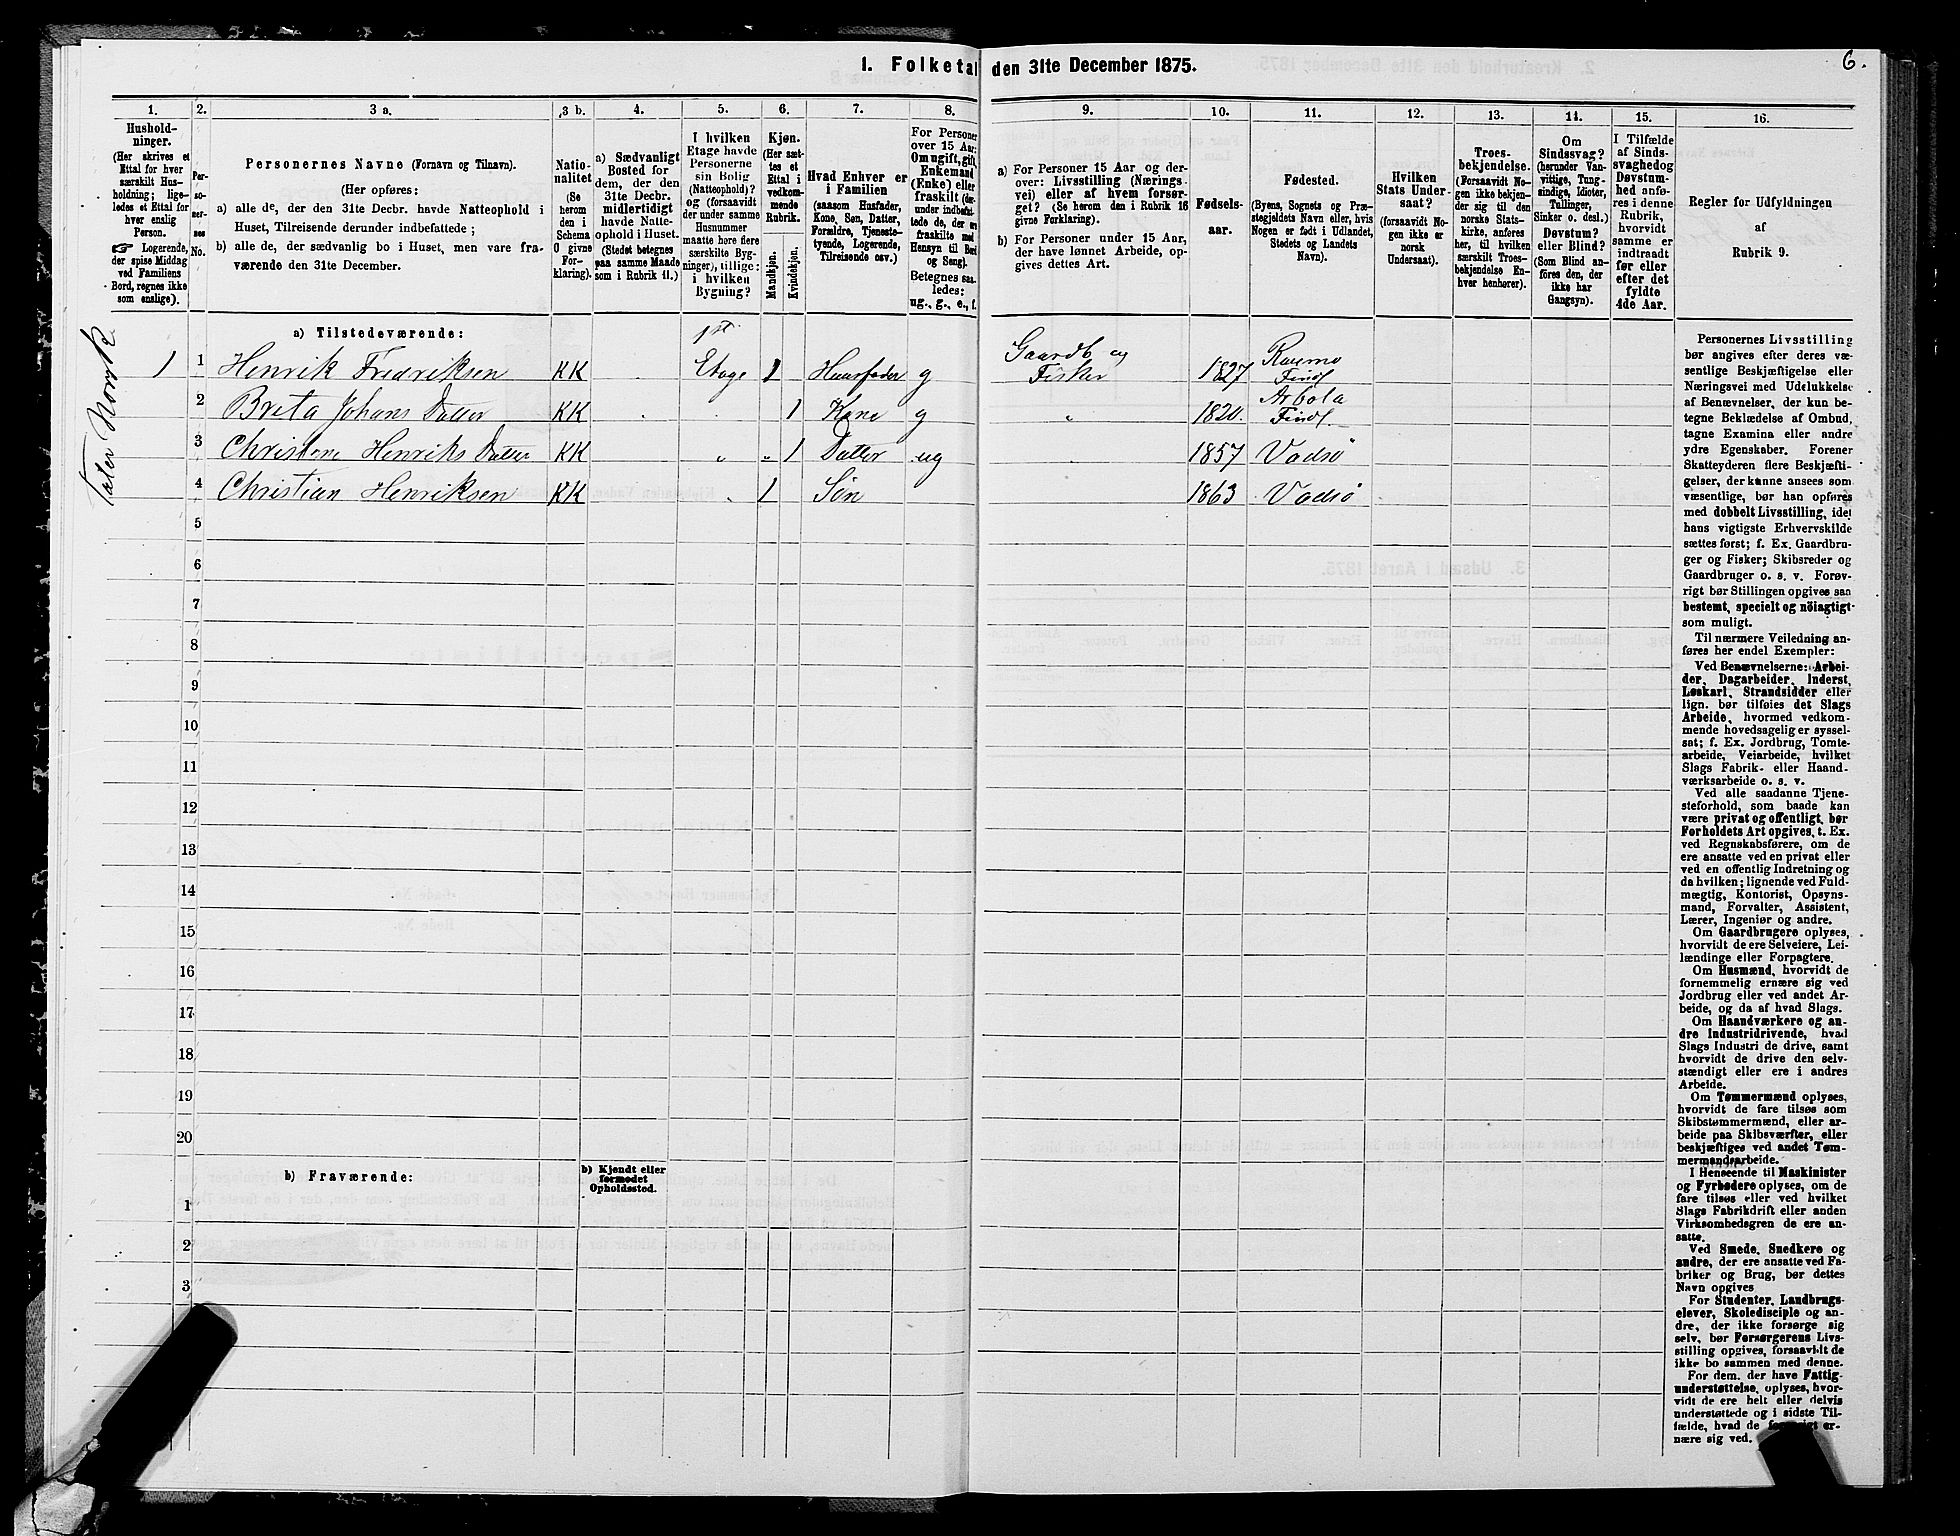 1. Folketal den 31te December 1875.
6.
1.
2.
3 a.
3 b.
4.
5.
6.
7.
8.
9.
10.
11.
12.
13.
14.
15.
16.
Hushold-
ninger.
(Her skrives et
Ettal for hver
særskilt Hus-
holdning; lige-
ledes et Ettal for
hver enslig
Person.
☞ Logerende,
der spise Middag
ved Familiens
Bord, regnes ikke
som enslige).
Per-
so-
ner-
nes
No.
Personernes Navne (Fornavn og Tilnavn).
(Her opføres:
a) alle de, der den 31te Decbr. havde Natteophold i
Huset, Tilreisende derunder indbefattede;
b) alle de, der sædvanlig bo i Huset, men vare fra-
værende den 31te December.
Natio-
nalitet
(Se
herom
den i
Schema
O givne
For-
klaring).
a) Sædvanligt
Bosted for
dem, der den
31te Decbr.
midlertidigt
havde Natte-
ophold i Huset.
(Stedet betegnes
paa samme Maade
som i Rubrik 11.)
I hvilken
Etage havde
Personerne
sin Bolig
(Natteophold)?
og (forsaavidt
der under samme
Husnummer
maatte høre flere
særskilte Byg-
ninger), tillige:
i hvilken
Bygning?
Kjøn.
(Her sæt-
tes et
Ettal i
vedkom-
mende
Rubrik.
Mandkjøn.
Kvindekjøn.
Hvad Enhver er
i Familien
(saasom Husfader,
Kone, Søn, Datter,
Forældre, Tjeneste-
tyende, Logerende,
Tilreisende osv.)
For Personer
over 15 Aar:
Om ugift, gift,
Enkemand
(Enke) eller
fraskilt (der-
under indbefat-
tede de, der ere
fraskilte med
Hensyn til Bord
og Seng).
Betegnes saa-
ledes:
ug., g., e., f.
a) For Personer 15 Aar og der-
over: Livsstilling (Nærings-
vei) eller af hvem forsør-
get? (Se herom den i Rubrik 16
givne Forklaring).
b) For Personer under 15 Aar,
der have lønnet Arbeide, op-
gives dettes Art.
Fødsels-
aar.
Fødested.
(Byens, Sognets og Præ-
stegjeldets Navn eller, hvis
Nogen er født i Udlandet,
Stedets og Landets
Navn).
Hvilken
Stats Under-
saat?
(forsaavidt No-
gen ikke er
norsk
Undersaat).
Troes-
bekjendelse.
(Forsaavidt No-
gen ikke bekjen-
der sig til den
norske Stats-
kirke, anføres
her, til hvilken
særskilt Troes-
bekjendelse En-
hver henhører).
Om
Sindssvag?
(herunder Van-
vittige, Tung-
sindige, Idioter,
Tullinger,
Sinker o. desl.)
Døvstum?
eller Blind?
(Som Blind an-
føres den, der
ikke har
Gangsyn).
I Tilfælde
af Sinds-
svaghed og
Døvstum-
hed anfø-
res i denne
Rubrik,
hvorvidt
samme er
indtraadt
før eller
efter det
fyldte
4de Aar.
Regler for Udfyldningen
af
Rubrik 9.
Taler Norsk
a) Tilstedeværende:
1 1 Henrik Fredriksen KK 1st. Etage 1 Huusfader g Gaardb og Fisker 1827 Findl
2 Breta Johans Datter KK 1 Kone g „ 1820 Arbola Findl.
3 Christene Henriks Datter KK „ „ 1 Datter ug 1857 Vadsø
4 Christian Henriksen KK 1 Søn 1863 Vadsø
5
6
7
8
9
10
11
12
13
14
15
16
17
18
19
20
b) Fraværende:
b) Kjendt eller
formodet
Opholdssted.
1
2
3
Personernes Livsstilling
bør angives efter deres væ-
sentlige Beskjæftigelse eller
Næringsvei med Udelukkelse
af Benævnelser, der kun be-
tegne Beklædelse af Ombud,
tagne Examina eller andre
ydre Egenskaber. Forener
Skatteyderen flere Beskjæfti-
gelser, der kunne ansees som
væsentlige, bør han opføres
med dobbelt Livsstilling, idet
hans vigtigste Erhvervskilde
sættes først; f. Ex. Gaardbru-
ger og Fisker; Skibsreder og
Gaardbruger o. s. v. Forøv-
rigt bør Stillingen opgives saa
bestemt, specielt og nöiagtigt
som muligt.
Til nærmere Veiledning an-
føres her endel Exempler:
Ved Benævnelserne: Arbei-
der, Dagarbeider, Inderst,
Løskarl, Strandsidder eller
lign. bør tilføies det Slags
Arbeide, hvormed vedkom-
mende hovedsagelig er syssel-
sat; f. Ex. Jordbrug, Tomte-
arbeide, Veiarbeide, hvilket
Slags Fabrik- eller Haand-
værksarbeide o. s. v.
Ved alle saadanne Tjene-
steforhold, som baade kan
være privat og offentligt, bør
Forholdets Art opgives, t. Ex.
ved Regnskabsførere, om de
ere ansatte ved en privat eller
ved en offentlig Indretning og
da hvilken; lignende ved Fuld-
mægtig, Kontorist, Opsyns-
mand, Forvalter, Assistent,
Lærer, Ingeniør og andre.
Om Gaardbrugere oplyses,
hvorvidt de ere Selveiere, Lei-
lændinge eller Forpagtere.
Om Husmænd, hvorvidt de
fornemmelig ernære sig ved
Jordbrug eller ved andet Ar-
beide, og da af hvad Slags.
Om Haandværkere og an-
dre Industridrivende, hvad
Slags Industri de drive, samt
hvorvidt de drive den selv-
stændigt eller ere i andres
Arbeide.
Om Tømmermænd oplyses,
hvorvidt de fare tilsøs som
Skibstømmermænd, eller ar-
beide paa Skibsværfter, eller
beskjæftiges ved andet Tøm-
mermandsarbeide.
I Henseende til Maskinister
og Fyrbødere oplyses, om de
fare tilsøs eller ved hvilket
Slags Fabrikdrift eller anden
Virksomhedsgren de ere an-
satte.
Ved Smede, Snedkere og
andre, der ere ansatte ved Fa-
briker og Brug, bør dettes
Navn opgives
For Studenter, Landbrugs-
elever, Skoledisciple og an-
dre, der ikke forsørge sig
selv, bør Forsørgerens Livs-
stilling opgives, forsaavidt de
ikke bo sammen med denne.
For dem, der have Fattig-
understøttelse, oplyses, hvor-
vidt de ere helt eller delvis
understøttede og i sidste Til-
fælde, hvad de forøvrigt er-
nære sig ved.